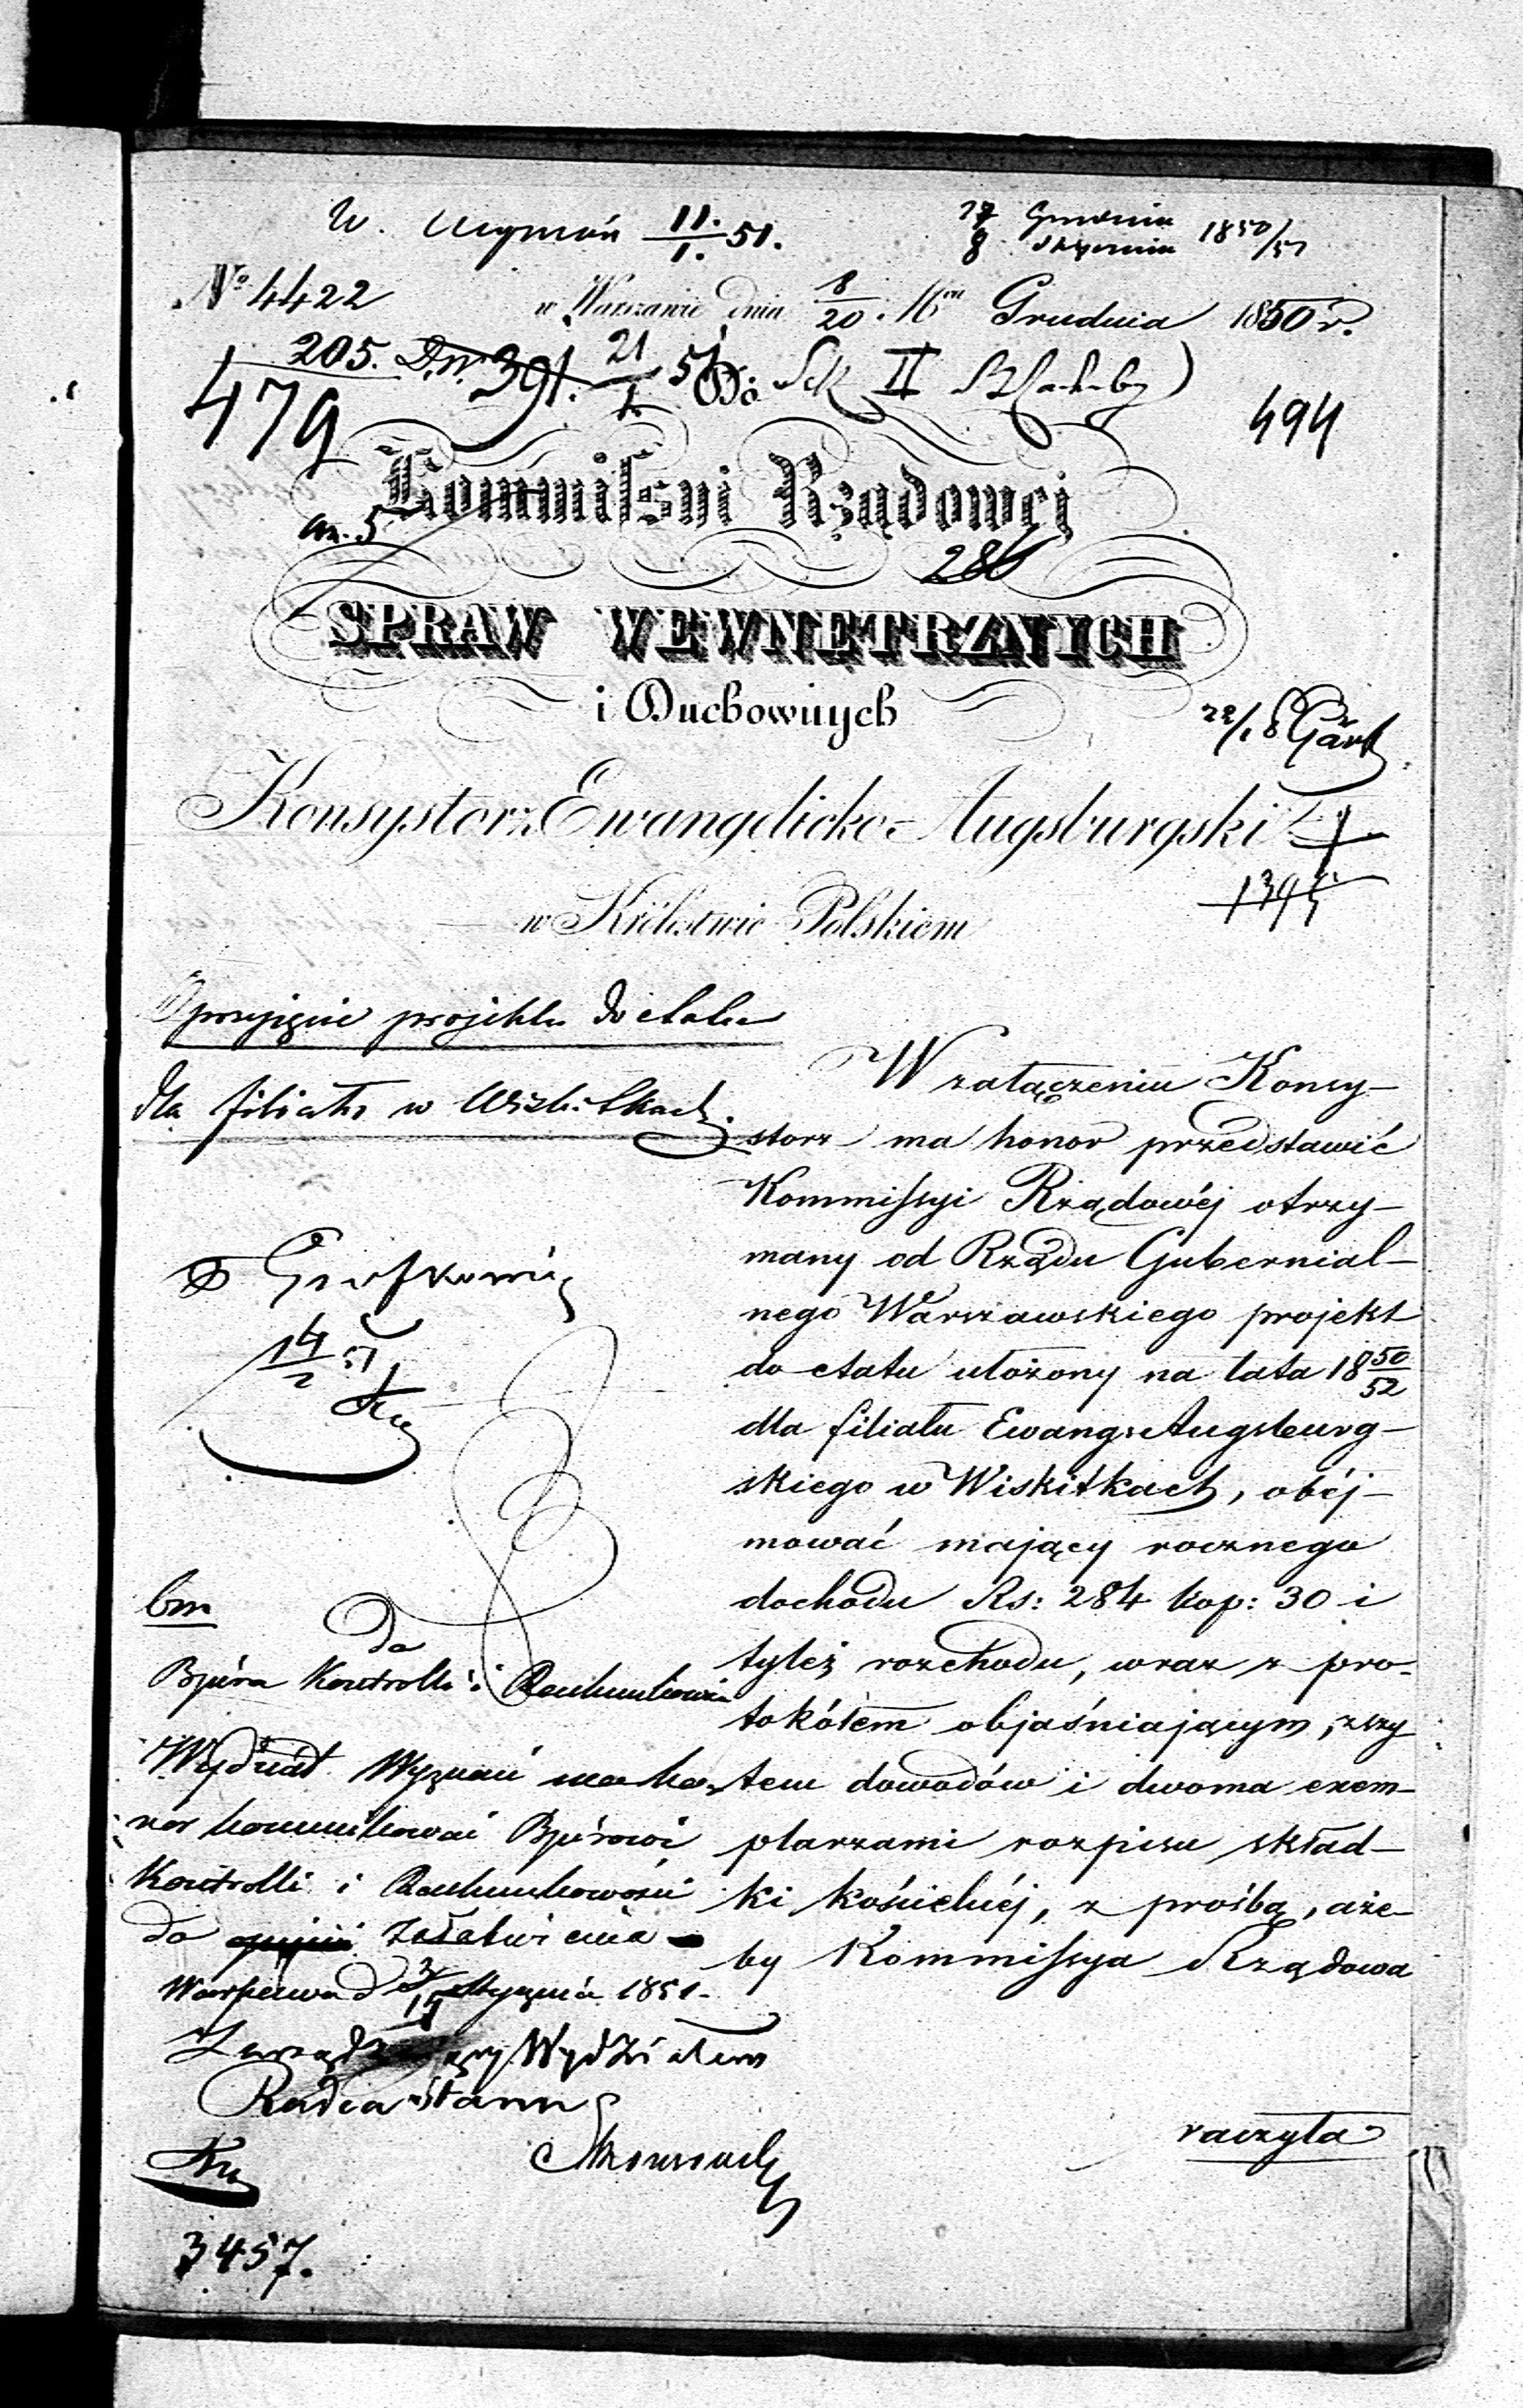 W. Wyznań 11./1. 51.
27 Grudnia
8 Stycznia 1850/51
No 4422
w Warszawie dnia 8/20 Mca Grudnia 1850 r.
205. 391. 21/1. 51
Do Sek II
479
494
Kommissyi Rządowej
an. 5
286
SPRAW WEWNĘTRZNYCH
i Duchownych
22/1
Konsystorz Ewangelicko-Augsburgski
1395
w Królestwie Polskiem
projektu do etatu
dla filiału w Wiskitkach.
W załączeniu Konsy-
storz ma honor przedstawić
Kommissyi Rządowéj otrzy-
many od Rządu Gubernial-
nego Warszawskiego projekt
do etatu ułożony na lata 18 50/52
dla filiału Ewang: Augsburg-
skiego w Wiskitkach, obéj-
mować mający rocznego
dochodu Rs: 284 kop: 30 i
tyleż rozchodu, wraz z pro-
tokółem objaśniającym, zszy
tem dowodów i dwoma exem-
plarzami rozpisu skład-
ki kościelnéj, z prośbą, aże-
by Kommissya Rządowa
raczyła
14/2 51
Do
Bjura Kontrolli i Rachunkowości
Wydział Wyznań ma ho-
nor kommunikować Bjórowi
Kontrolli i Rachunkowości
do opinii załatwienia
Warszawa d 3/15 Stycznia 1851.
Zarządzający Wydziałem
Radca Stanu
3457.